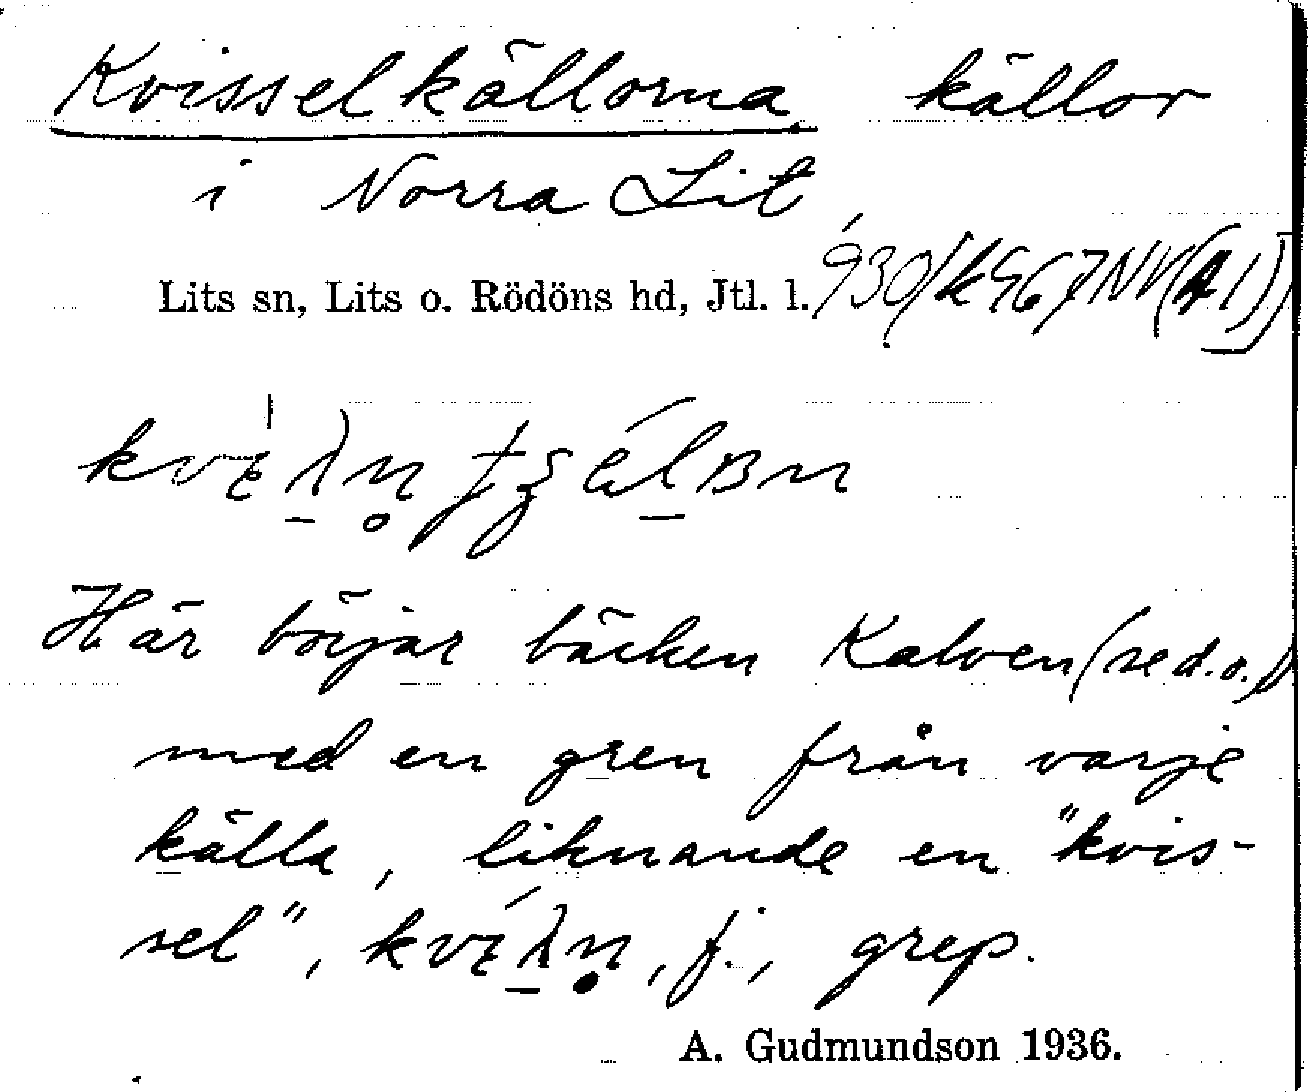 Kvisselkällorna källor
i Norra Lit,
Lits sn, Lits o. Rödöns hd, Jtl. l.
Här börjar bäcken Kalven (se d.o.)
med en gren från varje
källa, liknande en "kvis-
sel", f., grep.
A. Gudmundson 1936.